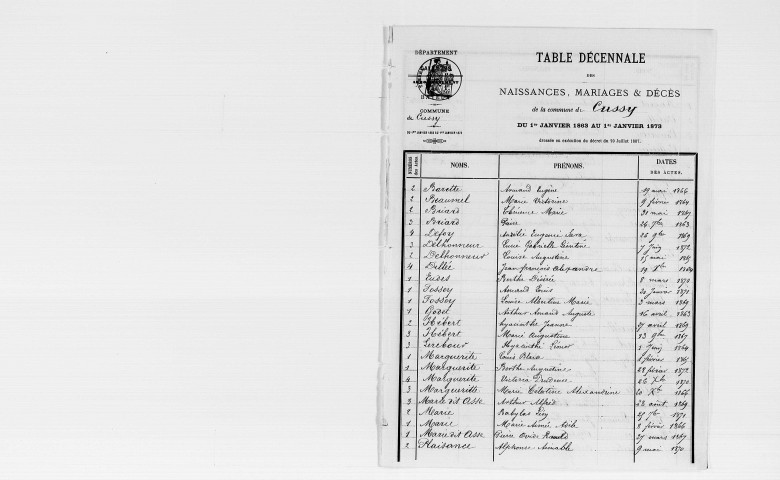 DÉPARTEMENT
COMMUNE
de Cussy
TABLE DÉCENNALE
DES
NAISSANCES, MARIAGES & DÉCÈS
de la commune de Cussy
DU 1er JANVIER 1863 AU 1er JANVIER 1873
dressée en exécution du décret du 20 Juillet 1807.
NOMS. PRÉNOMS. DATES DES ACTES.
2 Barette Armand Eugène 19 mai 1866
2 Beaumel Marie Victorine 9 février 1864
2 Briard Marie 31 mai 1867
3 Briard 26 7bre 1863
4 Defoy Aurélie Eugénie 26 9bre 1869
3 Delhonneur Gabrielle 7 Juin 1872
2 Delhonneur Louise Augustine 15 mai
4 Dellée Jean françois Alexandre 19
1 Eudes Berthe Désirée 8 mars 1870
1 Fossey Armand Louis 30 Janvier 1872
1 Fossey Louise Albertine Marie 3 mars 1869
1 Godet Arthur Amand Auguste 16 avril 1863
2 Hébert Hyacinthe Jeanne 17 avril 1869
3 Hébert Marie Augustine 13 9bre 1867
3 Lerebour Hyacinthe 3 Juin 1864
1 Marguerite Louis février
1 Marguerite Berthe Augustine 28 février 1872
4 Marguerite Victoria 26 1870
3 Marguerite Marie Célestine Alexandrine 20 Xbre 1866
3 Marie dit Asse Arthur Alfred 22 août 1869
2 Marie Babylas 25 7bre 1871
1 Marie Marie Aimée 2 février 1866
1 Marie dit Asse Pierre Ovide 27 mars 1867
2 Plaisance Alphonse Aimable 9 mai 1870